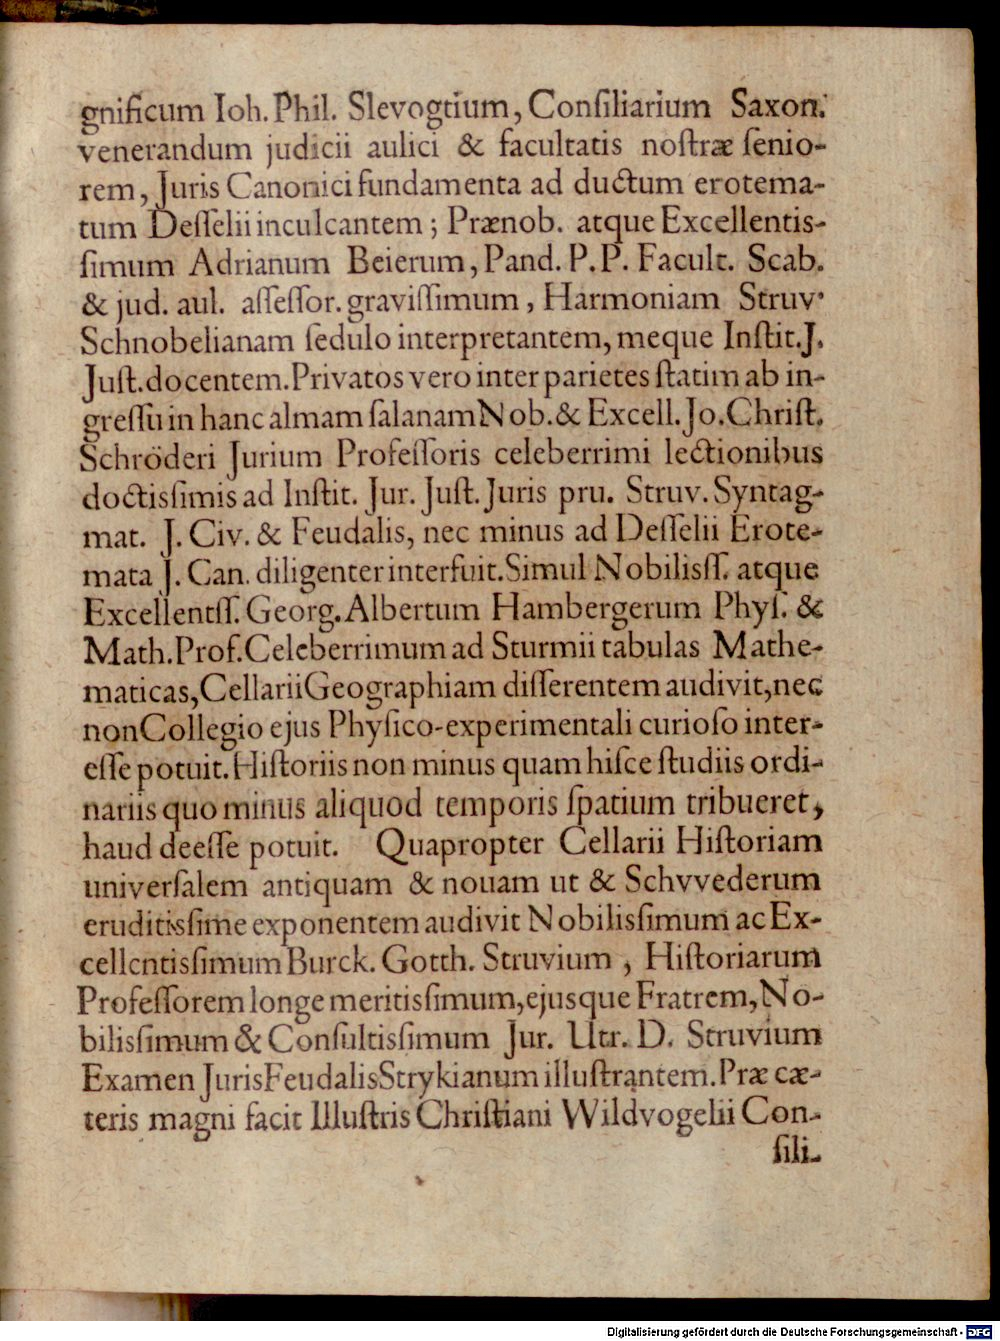 gnificum Ioh. Phil. Slevogtium, Conſiliarium Saxon.
venerandum judicii aulici & facultatis noſtræ ſenio-
rem, Juris Canonici fundamenta ad ductum erotema-
tum Deſſelii inculcantem ; Prænob. atque Excellentis-
ſimum Adrianum Beierum, Pand. P. P. Facult. Scab.
& jud. aul. aſſeſſor. graviſſimum, Harmoniam Struv-
Schnobelianam ſedulo interpretantem, meque Inſtit. J.
Juſt. docentem. Privatos vero inter parietes ſtatim ab in-
greſſu in hanc almam ſalanam Nob. & Excell. Jo. Chriſt.
Schröderi Jurium Profeſſoris celeberrimi lectionibus
doctissimis ad Inſtit. Jur. Juſt. Juris pru. Struv. Syntag-
mat. J. Civ. & Feudalis, nec minus ad Deſſelii Erote-
mata J. Can. diligenter interfuit. Simul Nobilisſſ. atque
Excellentſſ. Georg. Albertum Hambergerum Phyſ. &
Math. Prof. Celeberrimum ad Sturmii tabulas Mathe-
maticas, Cellarii Geographiam diſſerentem audivit, nec
non Collegio ejus Phyſico-experimentali curioſo inter-
eſſe potuit. Hiſtoriis non minus quam hiſce ſtudiis ordi-
nariis quo minus aliquod temporis ſpatium tribueret,
haud deeſſe potuit. Quapropter Cellarii Hiſtoriam
univerſalem antiquam & nouam ut & Schvvederum
eruditisſime exponentem audivit Nobilisſimum ac Ex-
cellentisſimum Burck. Gotth. Struvium , Hiſtoriarum
Profeſſorem longe meritisſimum, ejusque Fratrem, No-
bilisſimum & Conſultisſimum Jur. Utr. D. Struvium
Examen Juris Feudalis Strykianum illuſtrantem. Præ cæ-
teris magni facit Illuſtris Chriſtiani Wildvogelii Con-
ſili-
Digitalisierung gefördert durch die Deutsche Forschungsgemeinschaft - DFG